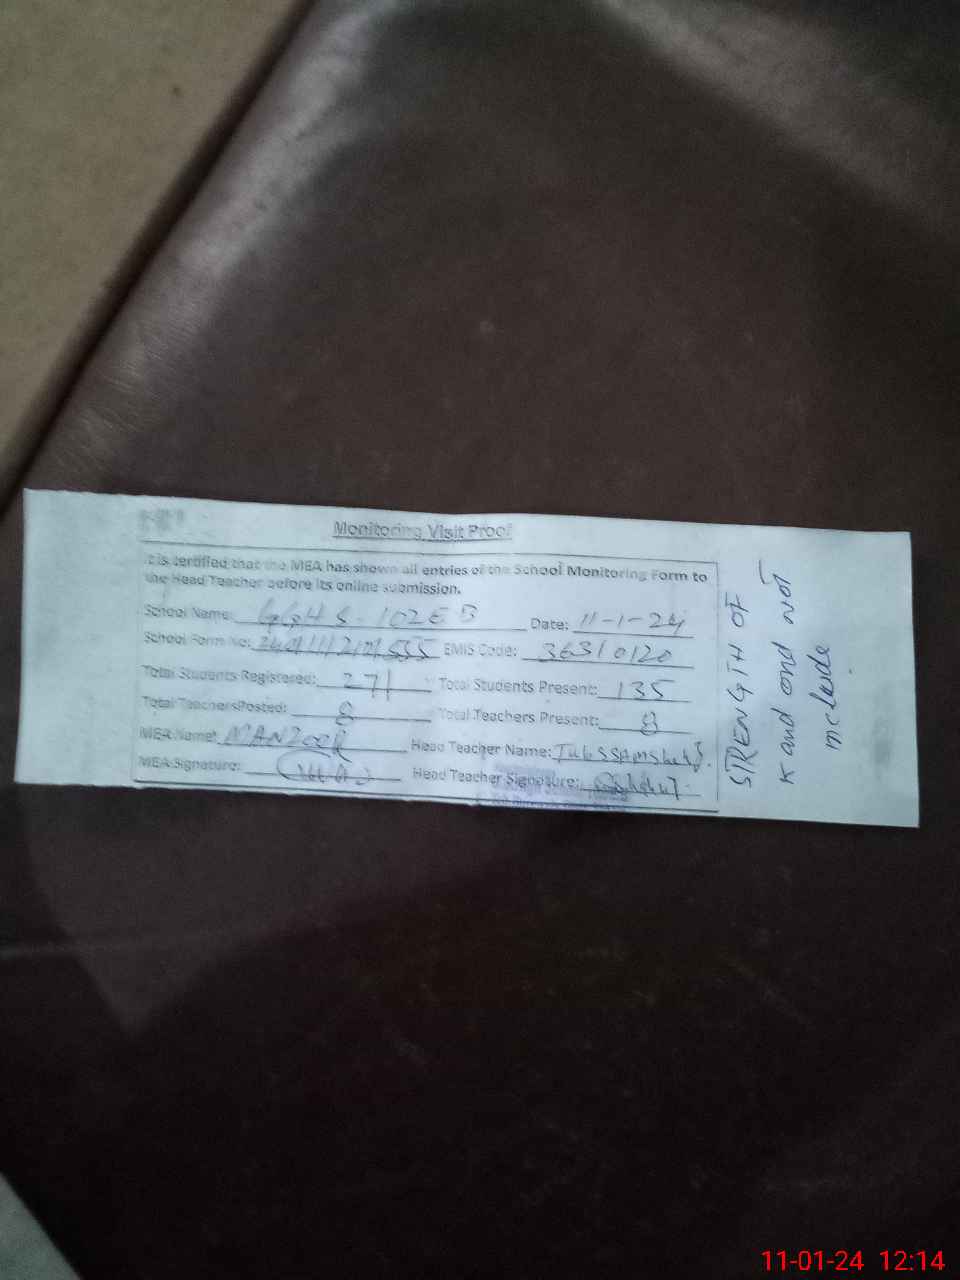 Monitoring Visit Proof
It is certified that the MEA has shown all entries of the School Monitoring Form to
the Head Teacher before its online submission.
School Name: GGHS-102EB Date: 11-1-24
School Form No: EMIS Code: 36310120
Total Students Registered: 271 Total Students Present: 135
Total TeachersPosted: 8 Total Teachers Present: 8
MEA Name: MANZOOR Head Teacher Name:
MEA Signature: Head Teacher Signature:
STRENGTH OF
K and and not
include
11-01-24 12:14